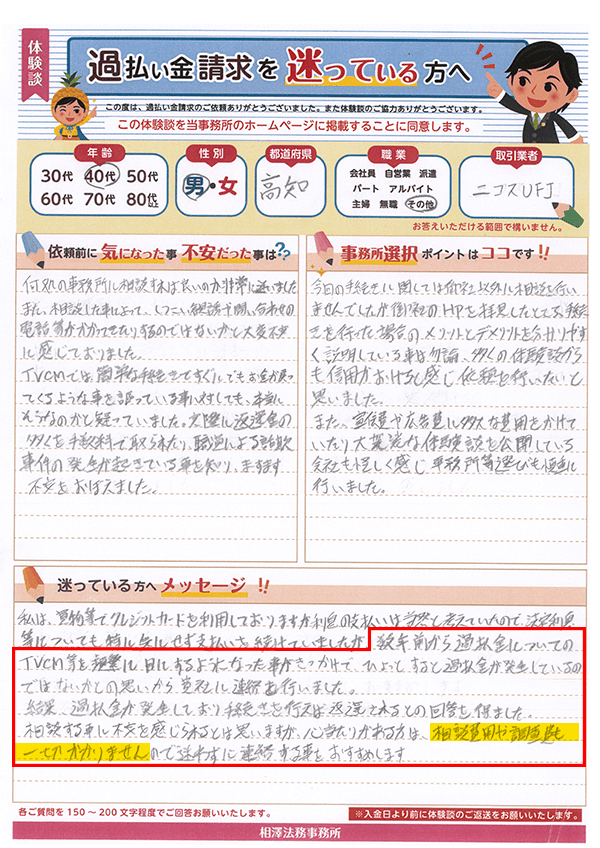 体験談
過払い金請求を迷っている方へ
この度は、過払い金請求のご依頼ありがとうございました。また体験談のご協力ありがとうございます。
この体験談を当事務所のホームページに掲載することに同意します。
年齢
30代 40代 50代
60代 70代 80代以上
性別
男・女
都道府県
高知
職業
会社員 自営業 派遣
パート アルバイト
主婦 無職 その他
取引業者
ニコスUFJ
お答えいただける範囲で構いません。
依頼前に気になった事 不安だった事は??
何処の事務所に相談すれば良いのか非常に迷いました
また、相談した事によって、しつこい勧誘や問い合わせの
電話等がかかってきたりするのではないかと大変不安
に感じておりました。
TVCMでは、簡単な手続きですぐにでもお金が戻っ
てくるような事を謳っている事に対しても、本当に
そうなのかと疑っていました。実際に返還金の
多くを手数料で取られたり、職員による詐欺
事件の発生が起きている事を知り、ますます
不安をおぼえました。
事務所選択ポイントはココです!!
今回の手続きに関しては御社以外に相談を行い
ませんでしたが御社のHPを拝見したところ、手続き
を行った場合のメリットとデメリットを分かりやす
く説明している事は勿論、多くの体験談から
も信用がおけると感じ依頼を行いたいと
思いました。
また、宣伝費や広告費に多大な費用をかけて
いたり大袈裟な体験談を公開している
会社も怪しく感じ事務所等選びも慎重に
行いました。
迷っている方へメッセージ!!
私は、買物等でクレジットカードを利用しておりますが利息の支払いは当然と考えていたので、法定利息
等についても特に気にせず支払いを続けていましたが、数年前から過払金についての
TVCM等を頻繁に目にするようになった事がきっかけで、ひょっとすると過払金が発生しているの
ではないかとの思いから貴社に連絡を行いました。
結果、過払金が発生しており手続きを行えば返還されるとの回答を得ました。
相談する事に不安を感じられるとは思いますが、心当たりがある方は、相談費用や調査費も
一切かかりませんので迷わずに連絡する事をおすすめします
各ご質問を150～200文字程度でご回答お願いいたします。
※入金日より前に体験談のご返送をお願いいたします。
相澤法務事務所